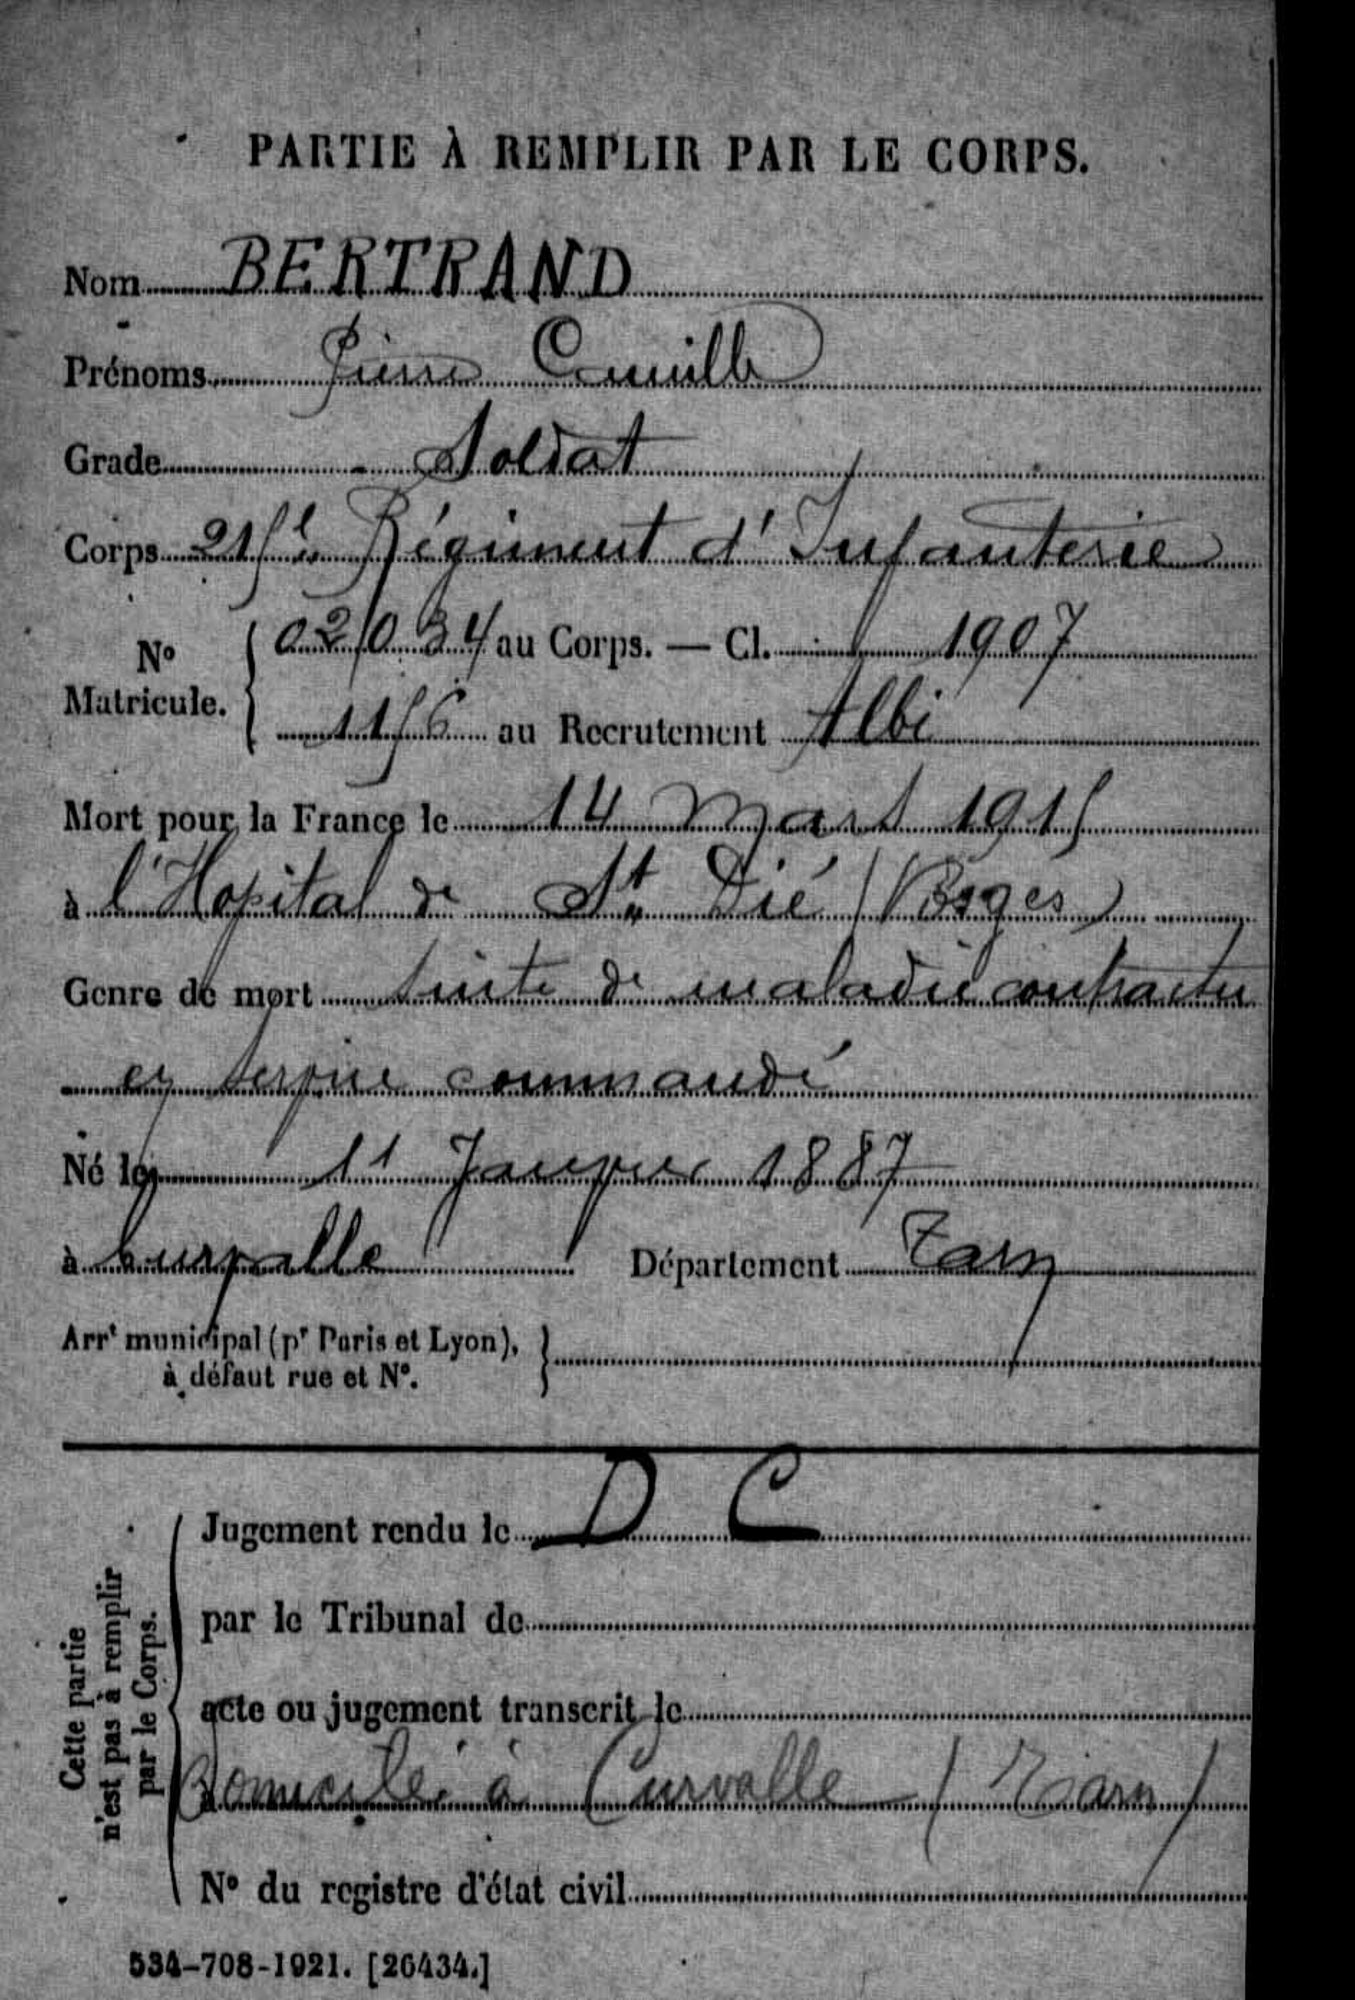 PARTIE À REMPLIR PAR LE CORPS.
Nom BERTRAND
Prénoms Pierre Camille
Grade Soldat
Corps 215e Régiment d'Infanterie
No Matricule. { 02034 au Corps. — Cl. 1907
1156 au Recrutement Albi
Mort pour la France le 14 Mars 1915
à l'Hopital de St Dié (Vosges)
Genre de mort suite de maladie contractée
en service commandé
Né le 11 Janvier 1887
à Curvalle Département Tarn
Arrt municipal (pr Paris et Lyon),
à défaut rue et No.
Cette partie
n'est pas à remplir
par le Corps.
Jugement rendu le D C
par le Tribunal de
acte ou jugement transcrit le
Domicilié à Curvalle (Tarn)
No du registre d'état civil
534-708-1921. [26434.]